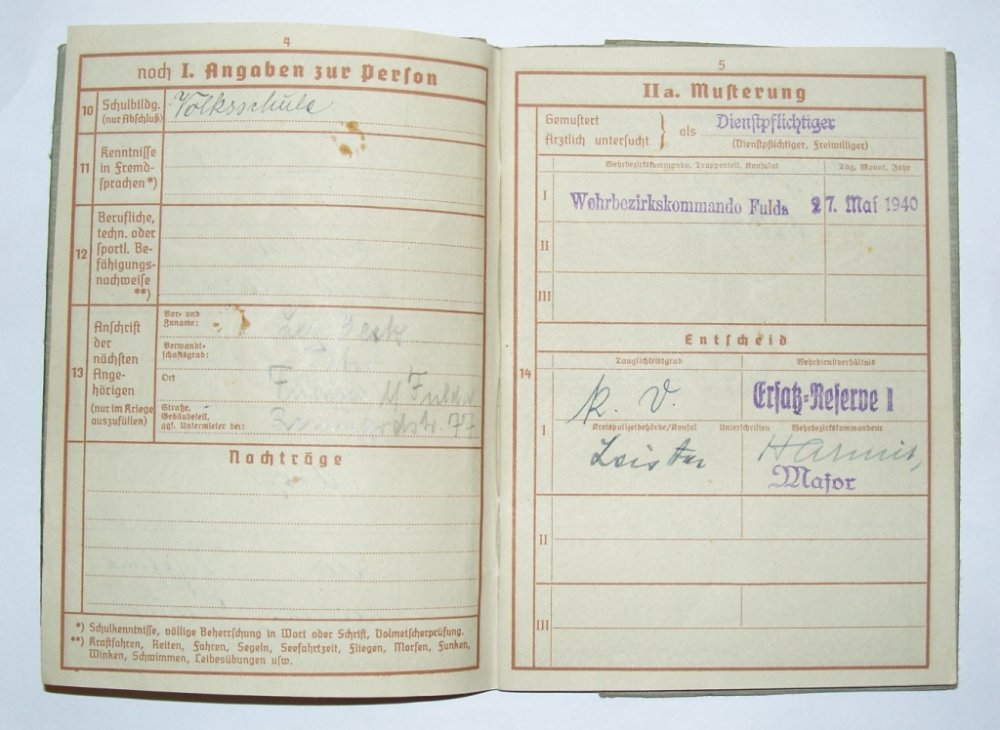 4
noch I. Angaben zur Person
10 Schulbildg. (nur Abschluß) Volksschule
11 Kenntnisse in Fremd-
sprachen*)
12 Berufliche,
techn. oder
sportl. Be-
fähigungs-
nachweise
**)
13 Anschrift
der
nächsten
Ange-
hörigen
(nur im Kriege
auszufüllen)
Vor- und
Zuname:
Verwandt-
schaftsgrad:
Ort
Fulda
Straße,
Gebäudeteil,
ggf. Untermieter bei:
Nachträge
*) Schulkenntnisse, völlige Beherrschung in Wort oder Schrift, Dolmetscherprüfung.
**) Kraftfahren, Reiten, Fahren, Segeln, Seefahrtzeit, Fliegen, Morsen, Funken,
Winken, Schwimmen, Leibesübungen usw.
5
IIa. Musterung
Gemustert
Ärztlich untersucht } als Dienstpflichtiger
(Dienstpflichtiger, Freiwilliger)
Wehrbezirkskommando, Truppenteil, Konsulat Tag, Monat, Jahr
I Wehrbezirkskommando Fulda 27. Mai 1940
II
III
Entscheid
14
Tauglichkeitsgrad Wehrdienstverhältnis
k. v. Ersatz-Reserve I
I Kreispolizeibehörde/Konsul Unterschriften Wehrbezirkskommandeur
Major
II
III